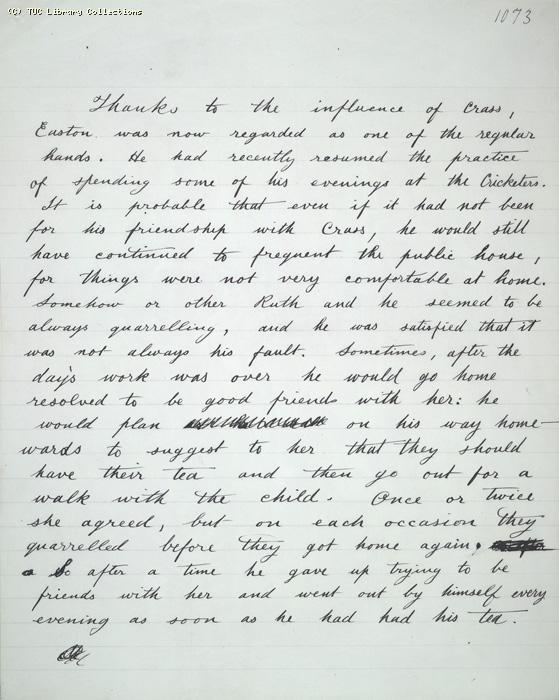 (C) TUC Library Collections
1073
Thanks to the influence of Crass,
Easton was now regarded as one of the regular
hands. He had recently resumed the practice
of spending some of his evenings at the Cricketers.
It is probable that even if it had not been
for his friendship with Crass, he would still
have continued to frequent the public house,
for things were not very comfortable at home.
Somehow or other Ruth and he seemed to be
always quarrelling, and he was satisfied that it
was not always his fault. Sometimes, after the
day's work was over he would go home
resolved to be good friends with her: he
would plan on his way home-
wards to suggest to her that they should
have their tea and then go out for a
walk with the child. Once or twice
she agreed, but on each occasion they
quarrelled before they got home again.
So after a time he gave up trying to be
friends with her and went out by himself every
evening as soon as he had had his tea.